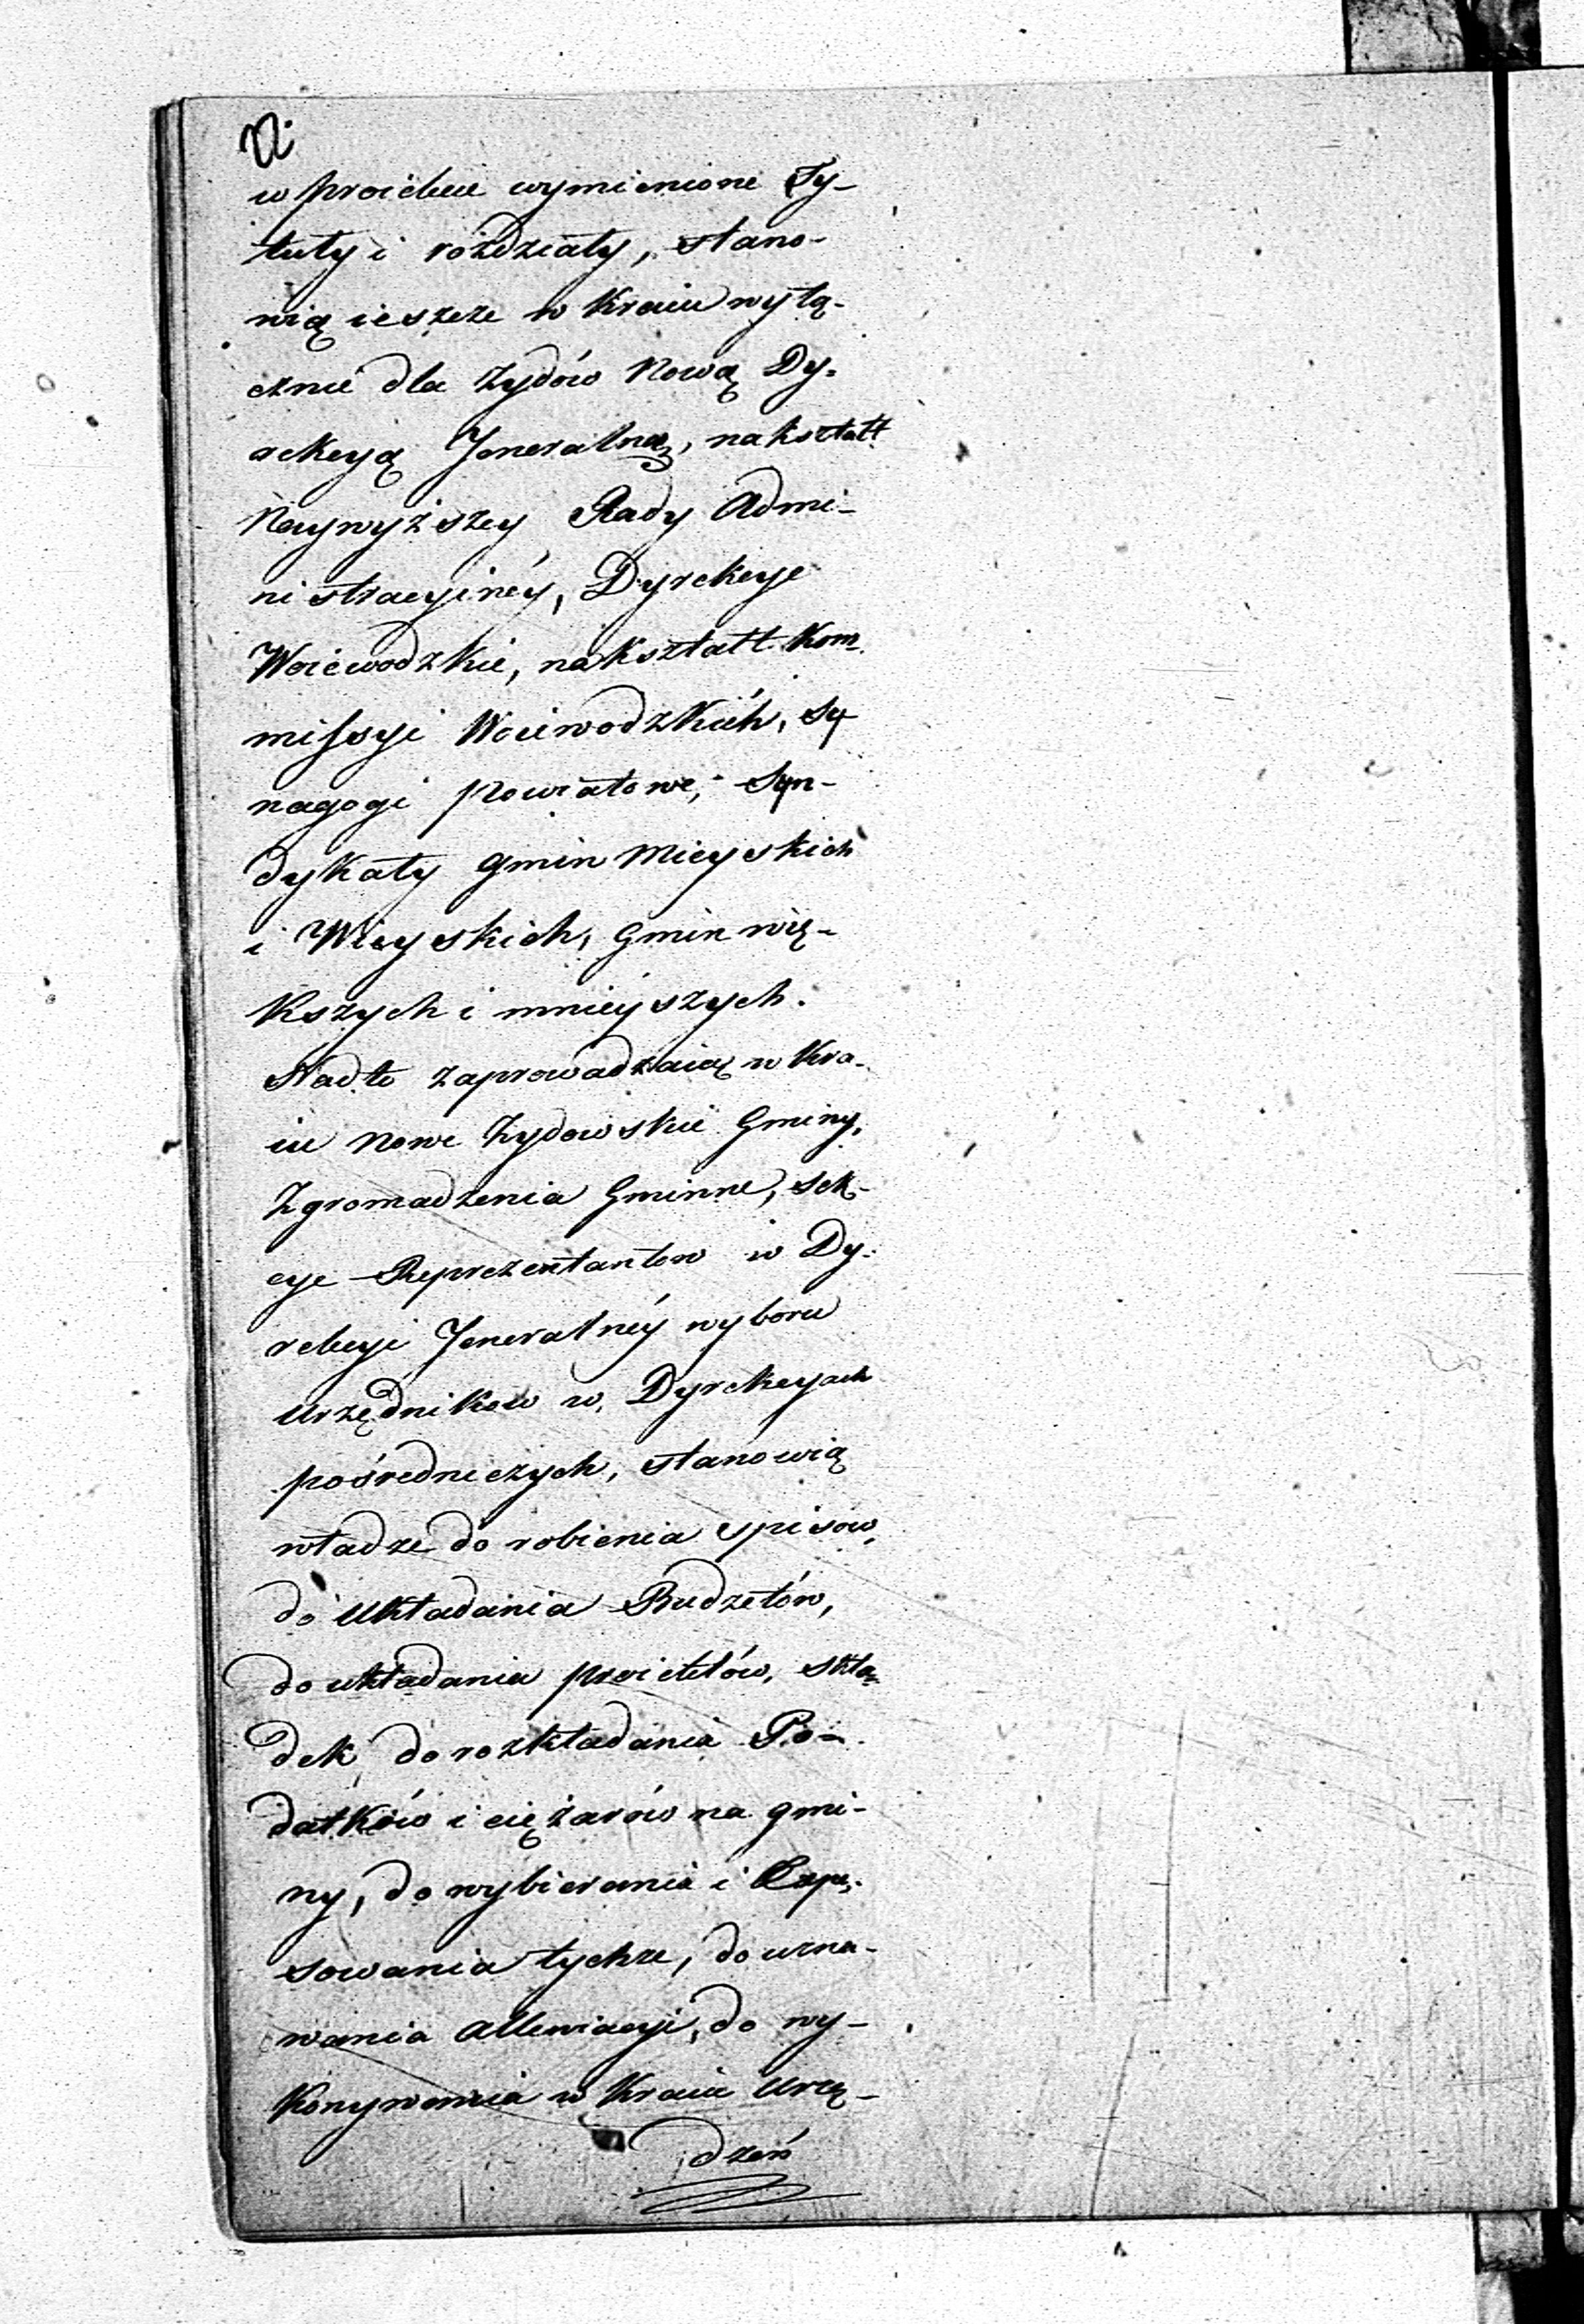 w proiekcie wymienione Ty-
tuły i rozdziały, stano-
wią ieszcze w Kraiu wyłą-
cznie dla Żydów Nową Dy-
rekcyą Jeneralną, nakształt
Naywyższey Rady Admi-
nistracyinéy, Dyrekcye
Woiewodzkie, nakształt Kom
missyi Woiewodzkich, Sy
nagogi Powiatowe, Syn-
dykaty Gmin Mieyskich
i Wieyskich, Gmin wię-
kszych i mnieyszych.
Nadto zaprowadzaią w Kra-
iu Nowe Żydowskie Gminy,
Zgromadzenia Gminne, Sek-
cye Reprezentantow w Dy-
rekcyi Jeneralnéy wyboru
Urzędnikow w Dyrekcyach
pośredniczych, stanowią
władze do robienia spisow,
do Układania Budżetów,
do układania proiektów, skła-
dek, do rozkładania Po-
datków i ciężarów na gmi-
ny, do wybierania i
sowania tychże, do uzna-
wania allewiacyi, do wy-
Konywania w Kraiu Urzę-
dzeń